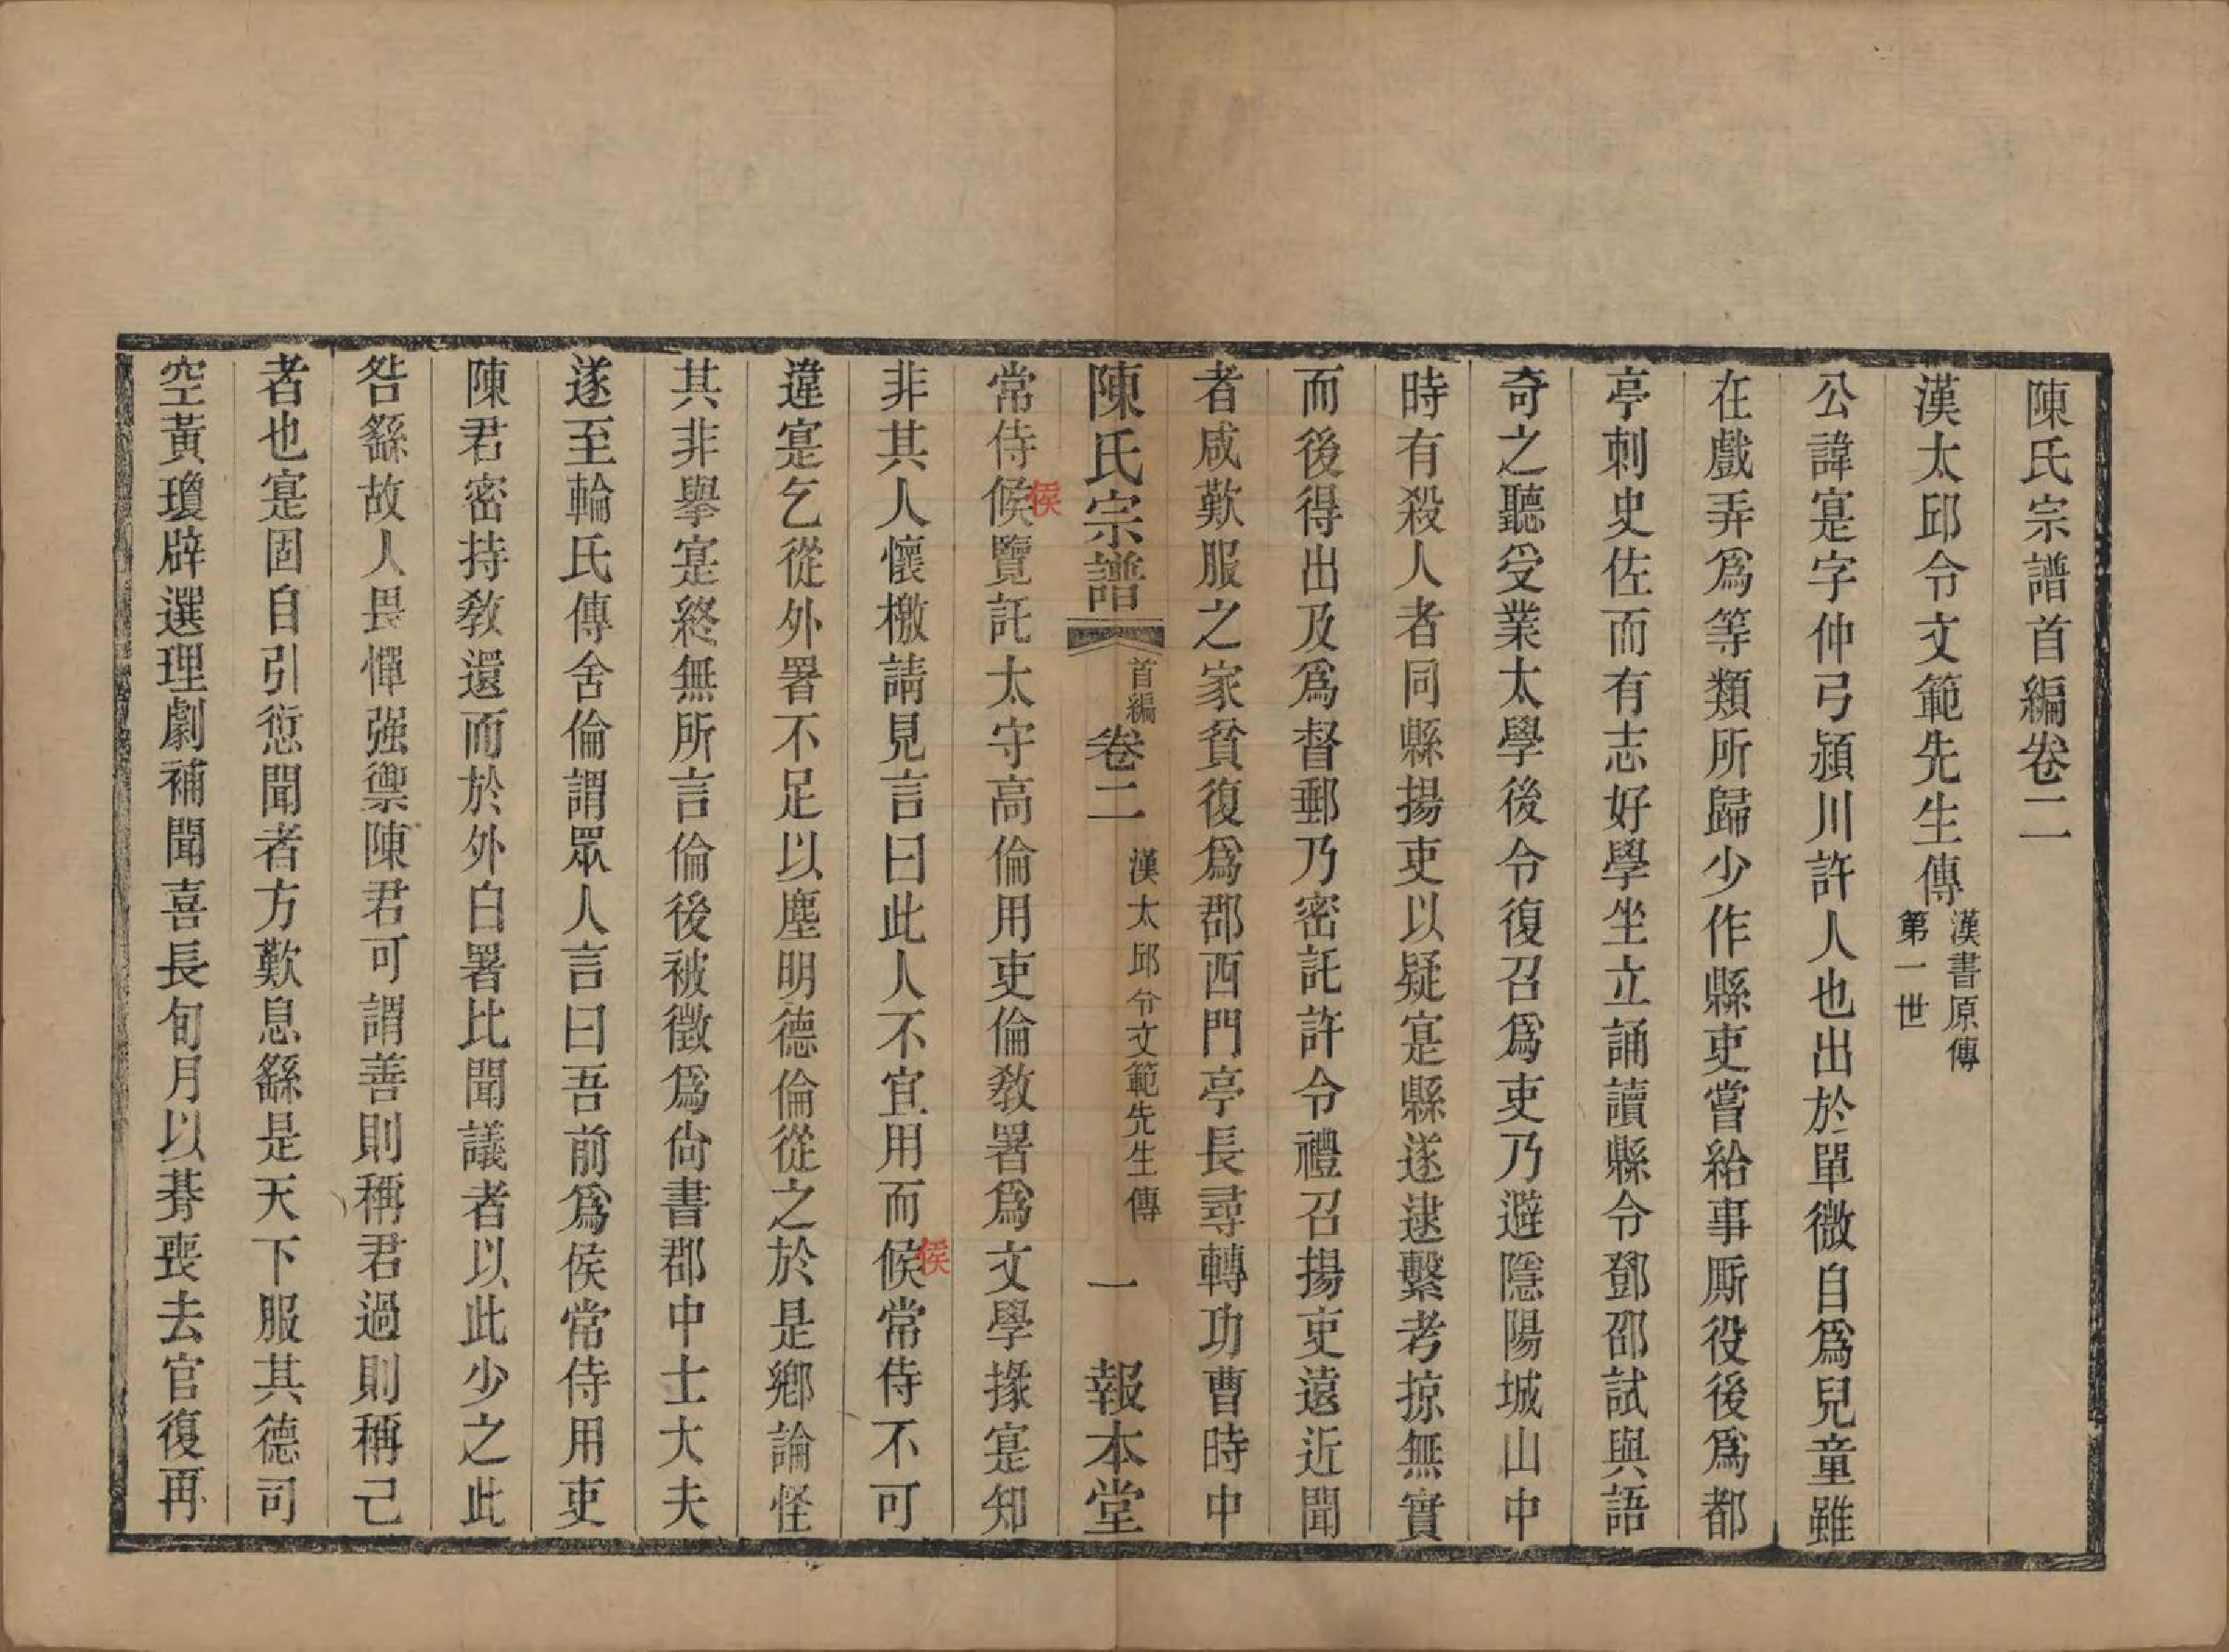 陳氏宗譜首編卷二
漢太邱令文範先生傳漢書原傳
第一世
公諱寔字仲弓潁川許人也出於單微自爲兒童雖
在戲弄爲等類所歸少作縣吏嘗給事厮役後爲都
亭刺史佐而有志好學坐立誦讀縣令鄧邵試與語
奇之聽受業太學後令復召爲吏乃避隱陽城山中
時有殺人者同縣揚吏以疑寔縣遂逮繫考掠無實
而後得出及爲督郵乃密託許令禮召揚吏遠近聞
者咸歎服之家貧復爲郡西門亭長尋轉功曹時中
陳氏宗譜
首編
卷二
漢太邱令文範先生傳
一
報本堂
常侍候覽託太守高倫用吏倫教署爲文學掾寔知
侯
非其人懷檄請見言曰此人不宜用而候常侍不可
侯
違寔乞從外署不足以塵明德倫從之於是鄉論怪
其非舉寔終無所言倫後被徵爲尙書郡中士大夫
遂至輪氏傳舍倫謂眾人言曰吾前爲侯常侍用吏
陳君密持教還而於外白署比聞議者以此少之此
咎繇故人畏憚强禦陳君可謂善則稱君過則稱己
者也寔固自引愆聞者方歎息繇是天下服其德司
空黃瓊辟選理劇補聞喜長旬月以朞喪去官復再